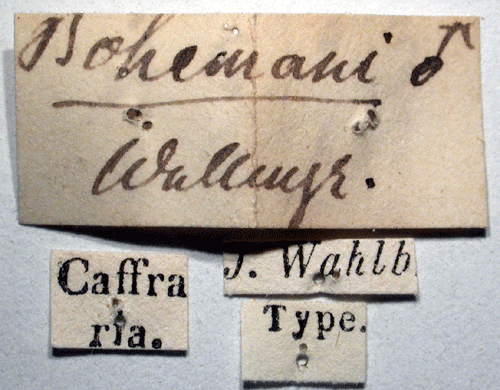 Bohemani ♂
Wallengr.
Caffra
ria.
J. Wahlb
Type.